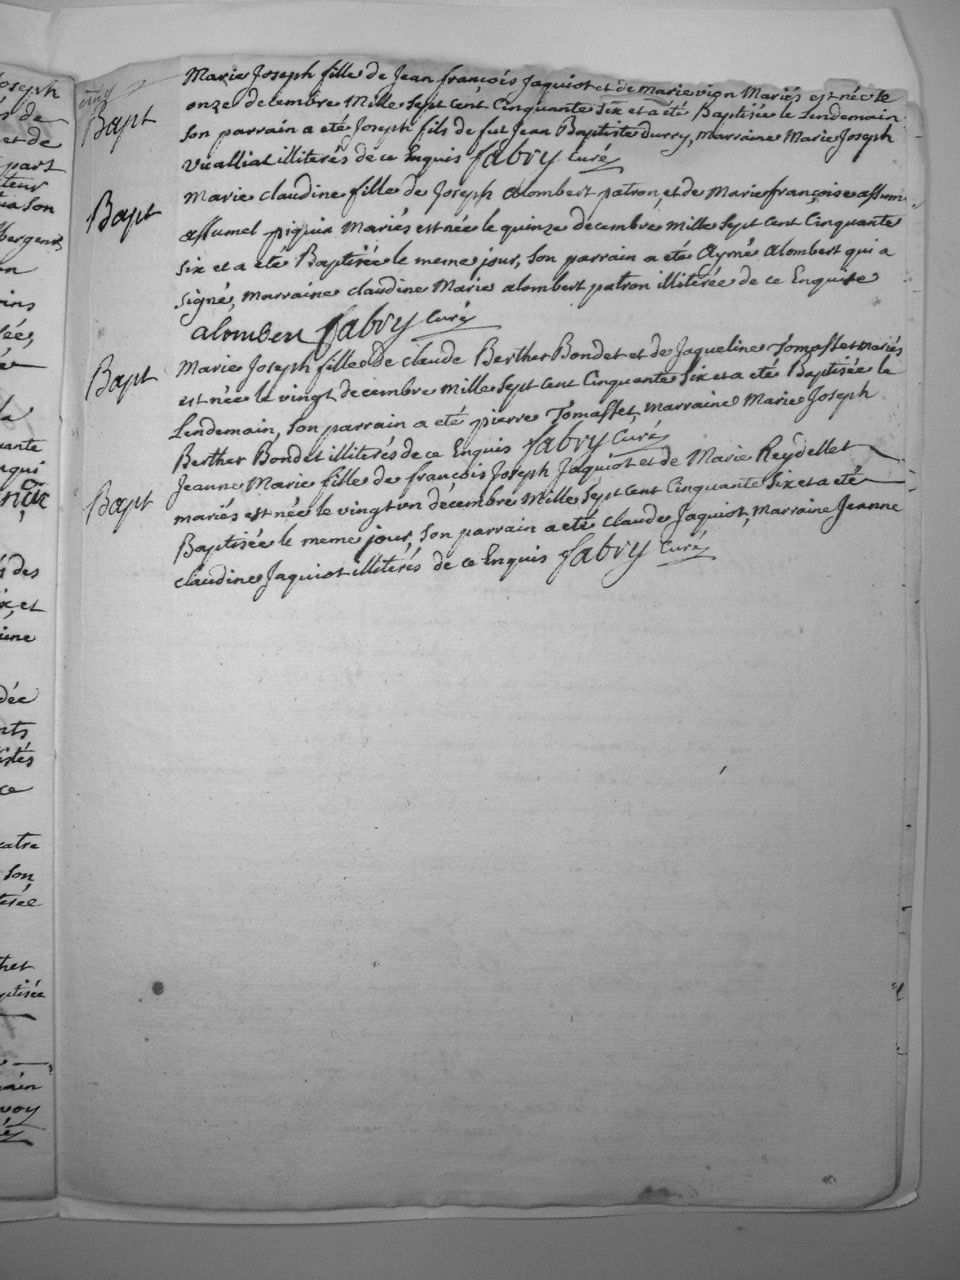 cinq
Bapt
Marie Joseph fille de Jean françois Jaquiot et de marie vion Mariés est née le
onze decembre Mille Sept cent Cinquante Six et a été Baptisée le Lendemain
son parrain a eté Joseph fils de fut Jean Baptiste durry, marraine Marie Joseph
Vualliat illiterés de ce Enquis fabry Curé
Bapt
Marie claudine fille de Joseph alombert patron, et de Marie françoise assum
assumel piquin Mariés est née le quinze decembre Mille Sept Cent Cinquante
Six et a eté Baptisée le meme jour, son parrain a eté Aymé alombert qui a
signé, marraine claudine Marie alombert patron illiterée de ce Enquise
alomber fabry Curé
Bapt
Marie Joseph fille de claude Berthet Bondet et de Jaqueline Tomasset mariés
est née le vingt decembre mille Sept Cent Cinquante Six et a eté Baptisée le
Lendemain, son parrain a eté pierre Tomasset, marraine Marie Joseph
Berthet Bondet illiterés de ce Enquis fabry Curé
Bapt
Jeanne Marie fille de françois Joseph Jaquiot et de Marie Reydellet
mariés est née le vingt un decembre Mille Sept Cent Cinquante Six et a eté
Baptisée le meme jour, son parrain a eté claude Jaquiot, marraine Jeanne
claudine Jaquiot illiterés de ce Enquis fabry Curé